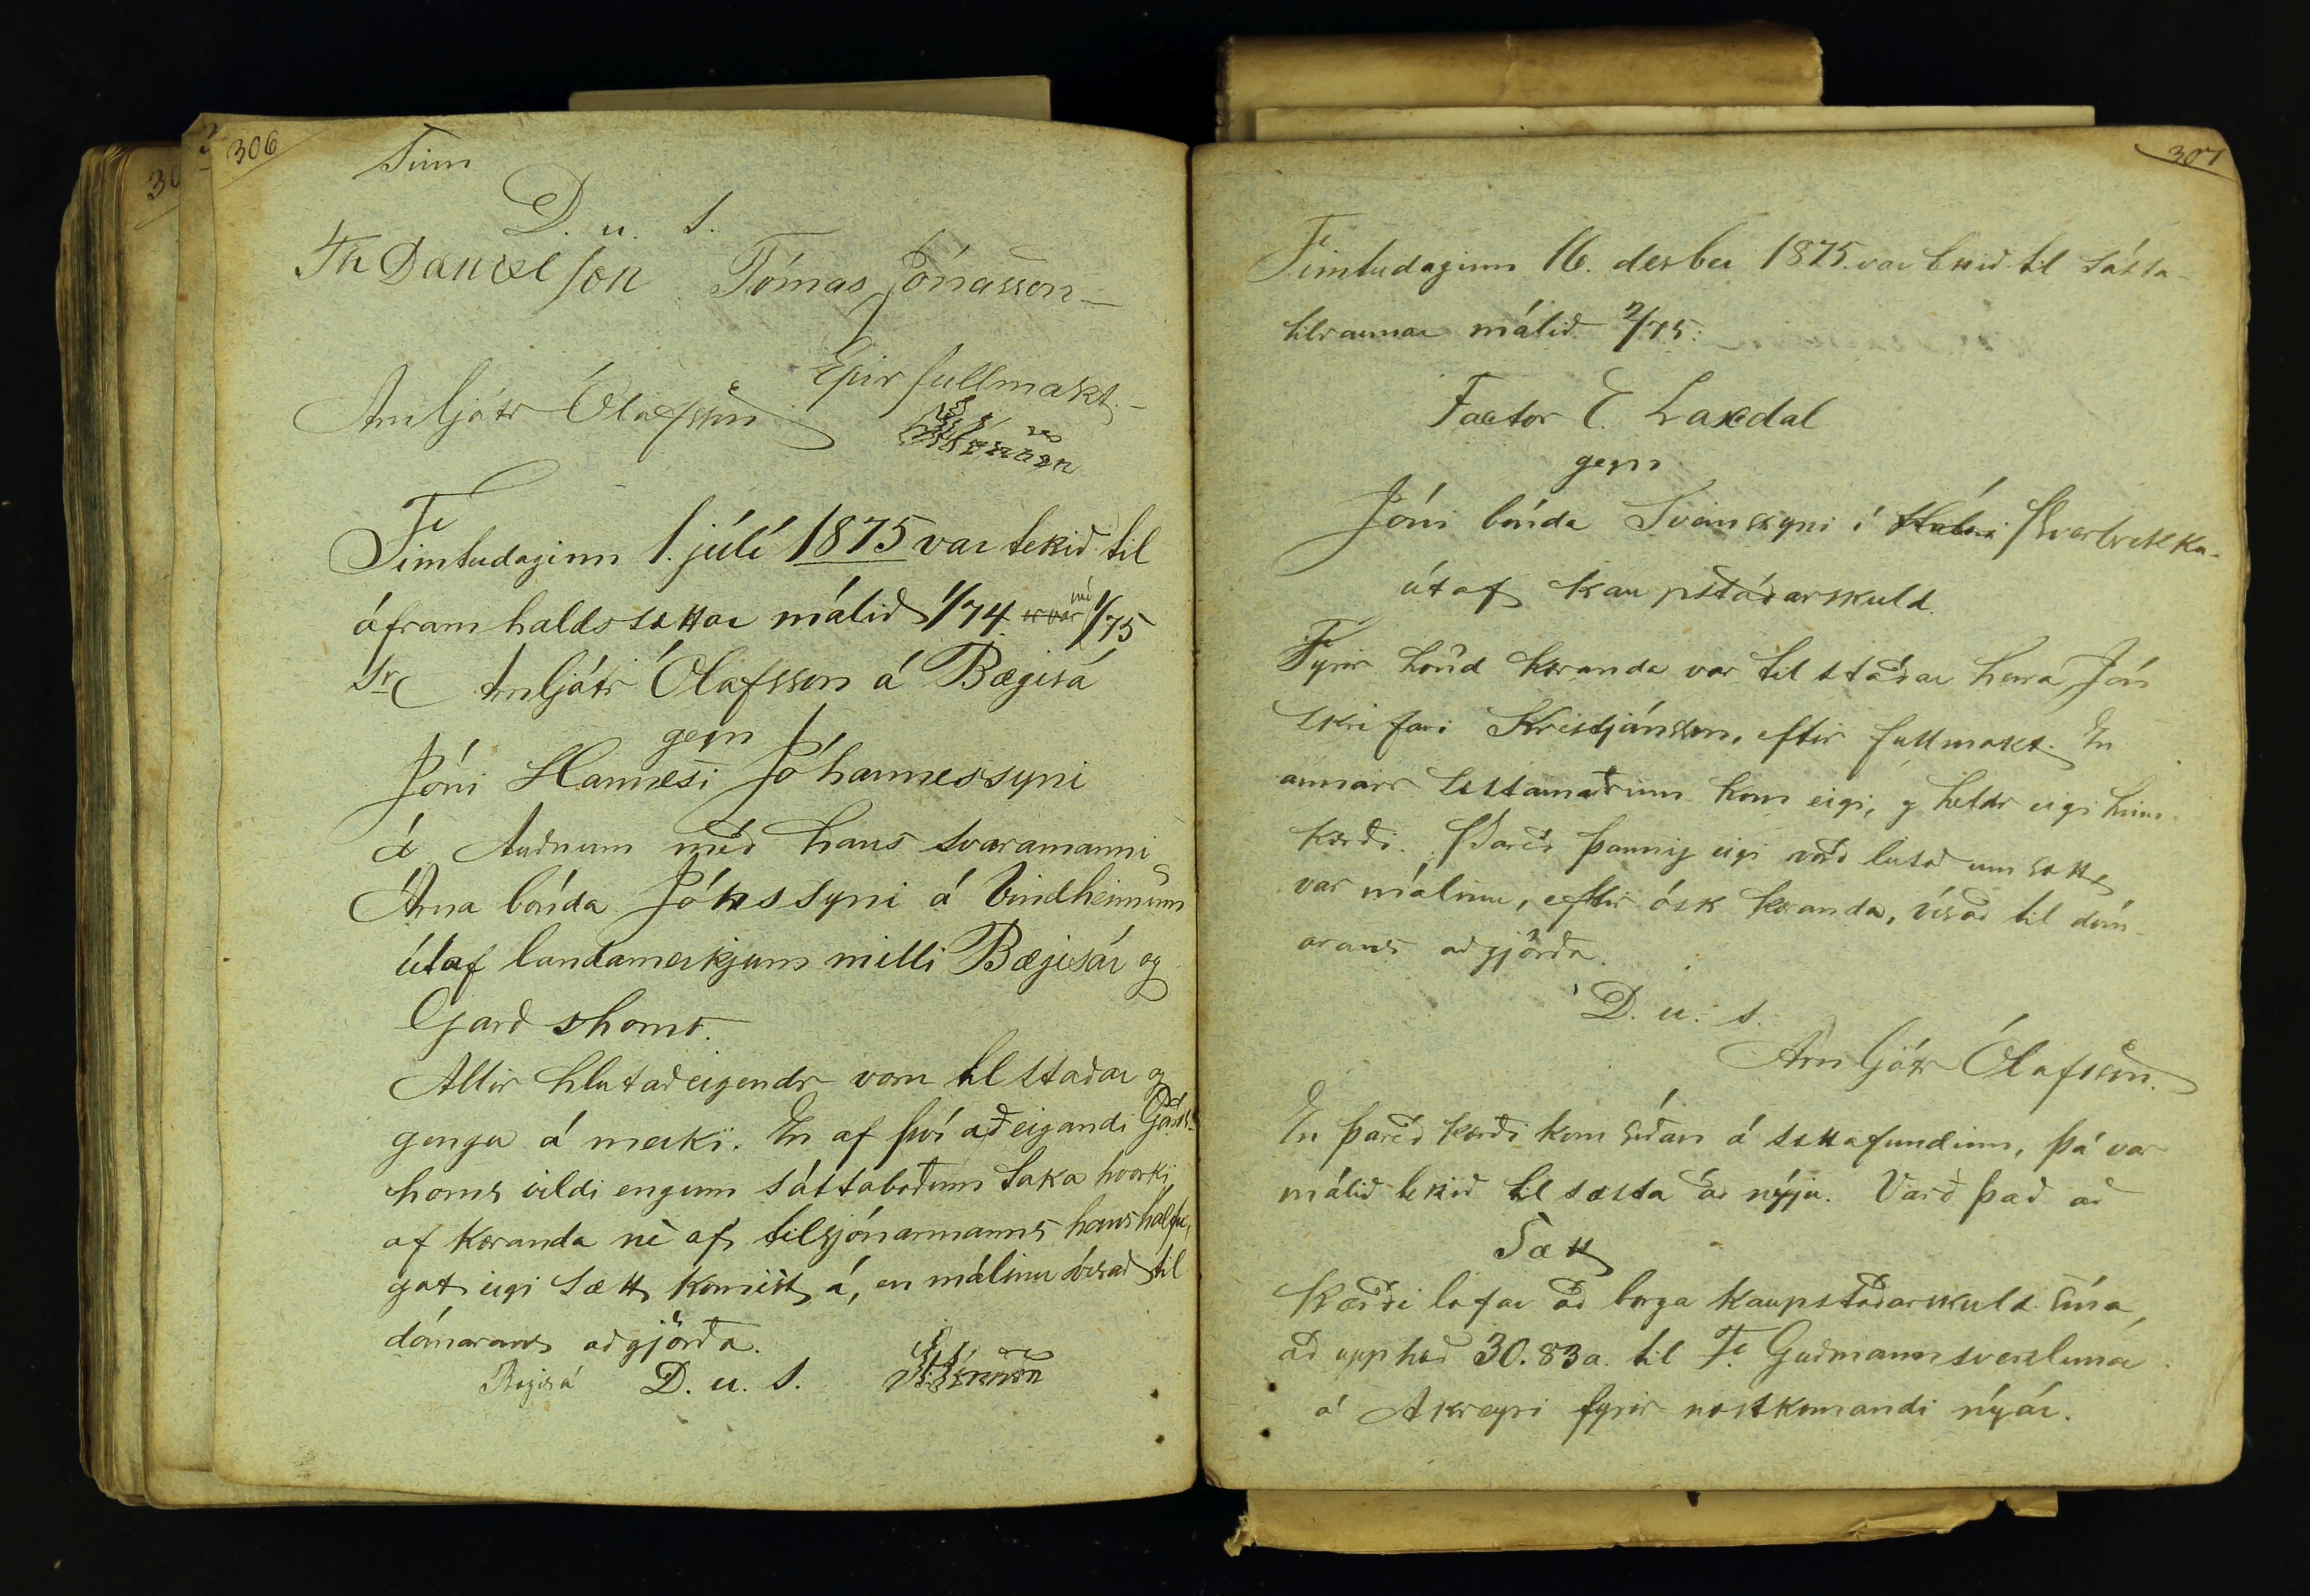 306
Sinn
D. u. s.
Th Daníelsson Tómas Jónasson
Arnljótr Ólafsson
Eptir fullmakt.
Fimtudaginn 1. júlí 1875 var tekið til
áframhaldssættar málið 1/74 nú 1/75
Sr Arnljótr Ólafsson á Bægisá
gegn
Jóni Hannesi Jóhannessyni
á Auðnum með hans svaramanni
Árna bónda Jónssyni á Vindheimum
útaf landamerkjum milli Bægisár og
Garðshorns.
Allir hlutaðeigendr voru til staðar og
gengu á merki. En af því að eigandi Garðs-
horns vildi engum sáttaboðum taka hvorki
af kæranda nè af tilsjónarmanns hans hálfu,
gat eigi sætt komist á, en málinu vísað til
dómarans aðgjörða.
Bægisá D. u. s.
307
Fimtudaginn 16. desber 1875. var tekið til sátta-
tilraunar málið 2/75:
Factor E. Laxdal
gegn
Jóni bónda Sveinssyni í Skverbrekku
útaf kaupstaðarskuld.
Fyrir hönd kæranda var til staðar herra Jón
skrifari Kristjánsson, eftir fullmakt. En
annarr sættamaðrinn kom eigi, og heldr eigi hinn
kærði. Þareð þannig eigi varð leitað um sætt,
var málinu, eftir ósk kæranda, vísað til dóm-
arans aðgjörða.
D. u. s.
Arnljótr Ólafsson.
En þareð kærði kom síðan á sættafundinn, þá var
málið tekið til sætta að nýju. Varð það að
Sætt
Kærði lofar að borga kaupstaðarskuld sína,
að upphæð 30. 83 a. til Fr Guðmannsverzlunar
á Akreyri fyrir næstkomandi nýár.